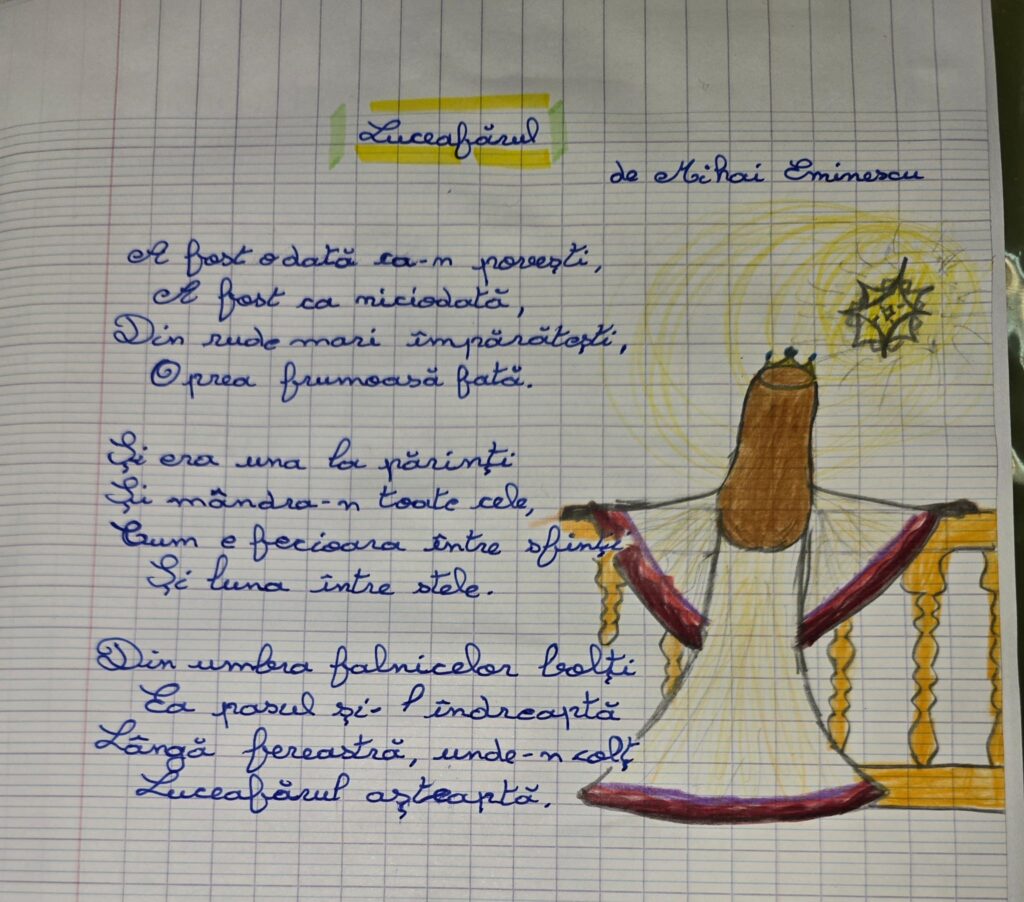 Luceafărul
de Mihai Eminescu
A fost odată ca-n povești,
A fost ca niciodată,
Din rude mari împărătești,
O prea frumoasă fată.
Și era una la părinți
Și mândra-n toate cele,
Cum e fecioara între sfinți
Și luna între stele.
Din umbra falnicelor bolți
Ea pasul și-l îndreaptă
Lângă fereastră, unde-n colț
Luceafărul așteaptă.